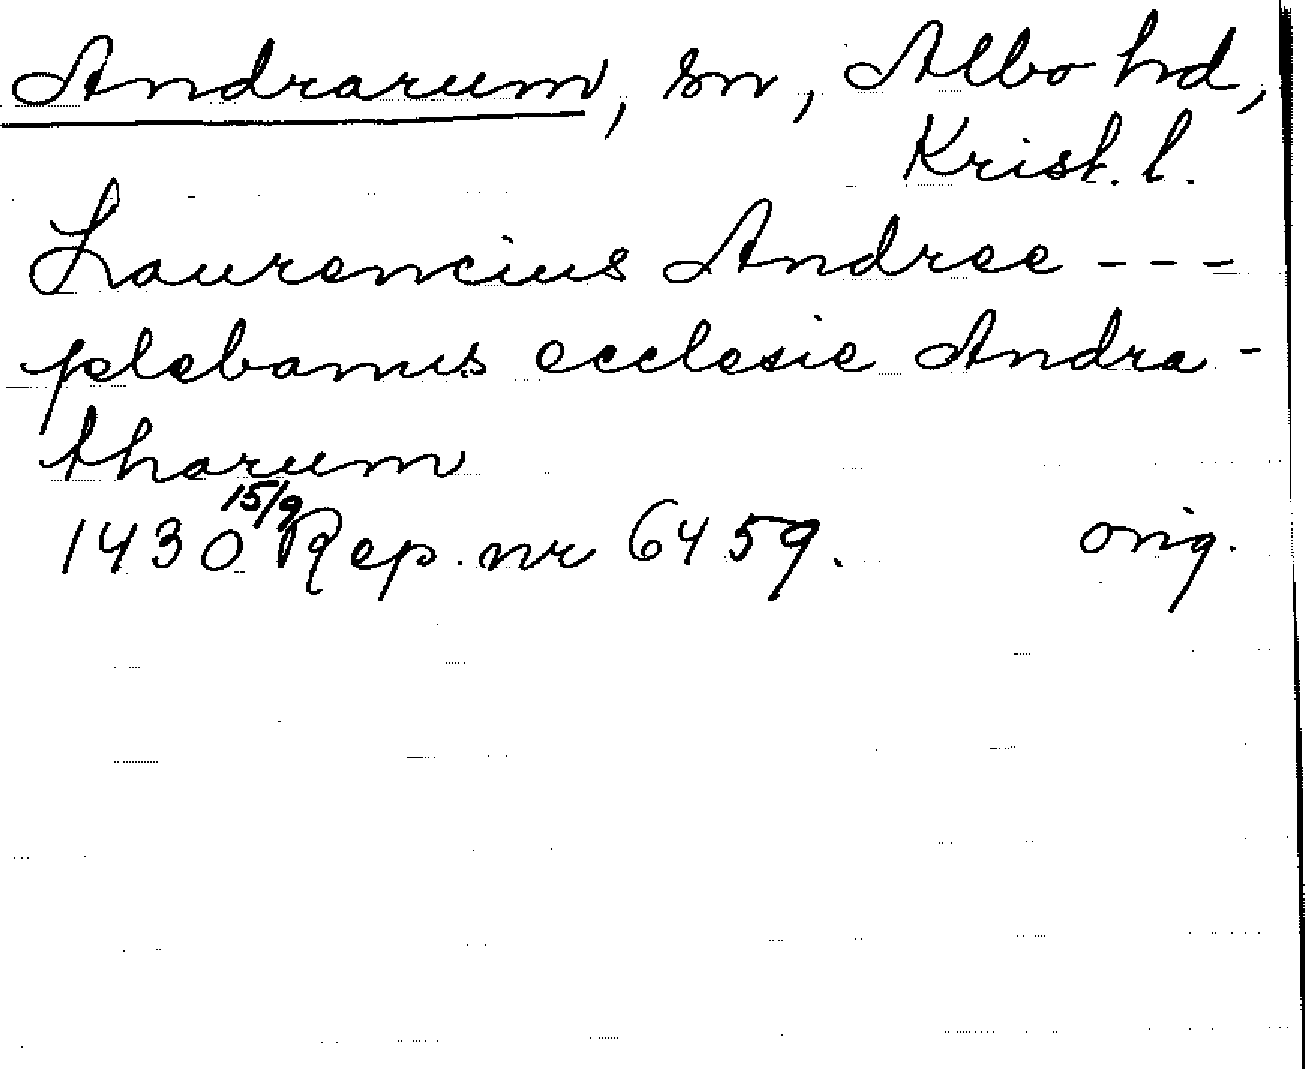 Andrarum, sn, Albo hd,
Krist. l.
Laurencius Andree ---
plebanus ecclesie Andra-
tharum
1430 15/9 Rep. nr 6459. orig.